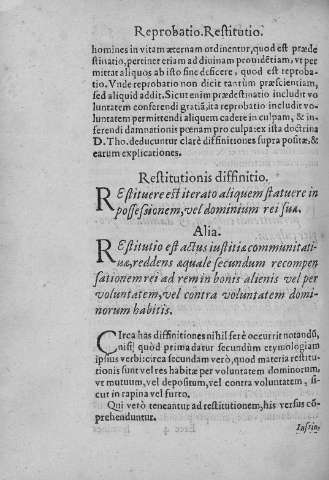 Reprobatio. Restitutio.
homines in vitam æternam ordinentur, quod est præde
stinatio, pertinet etiam ad diuinam prouidẽtiam, vt per
mittat aliquos ab isto fine deficere, quod est reproba-
tio. Vnde reprobatio non dicit tantùm præscientiam,
sed aliquid addit. Sicut enim prædestinatio includit vo
luntatem conferendi gratiã, ita reprobatio includit vo-
luntatem permittendi aliquem cadere in culpam, & in-
ferendi damnationis pœnam pro culpa: ex ista doctrina
D. Tho. deducuntur clarè diffinitiones supra positæ, &
earum explicationes.
Restitutionis diffinitio.
REstituere est iterato aliquem statuere in
possessionem, vel dominium rei suæ.
Alia.
REstitutio est actus iustitiæ communitati-
uæ, reddens æquale secundum recompen
sationem rei ad rem in bonis alienis vel per
voluntatem, vel contra voluntatem domi-
norum habitis.
CIrca has diffinitiones nihil ferè occurrit notandũ,
nisi quòd prima datur secundùm etymologiam
ipsius verbi: circa secundam verò, quod materia restitu-
tionis sunt vel res habitæ per voluntatem dominorum,
vt mutuum, vel depositum, vel contra voluntatem, si-
cut in rapina vel furto.
Qui verò teneantur ad restitutionem, his versus cõ-
prehenduntur.